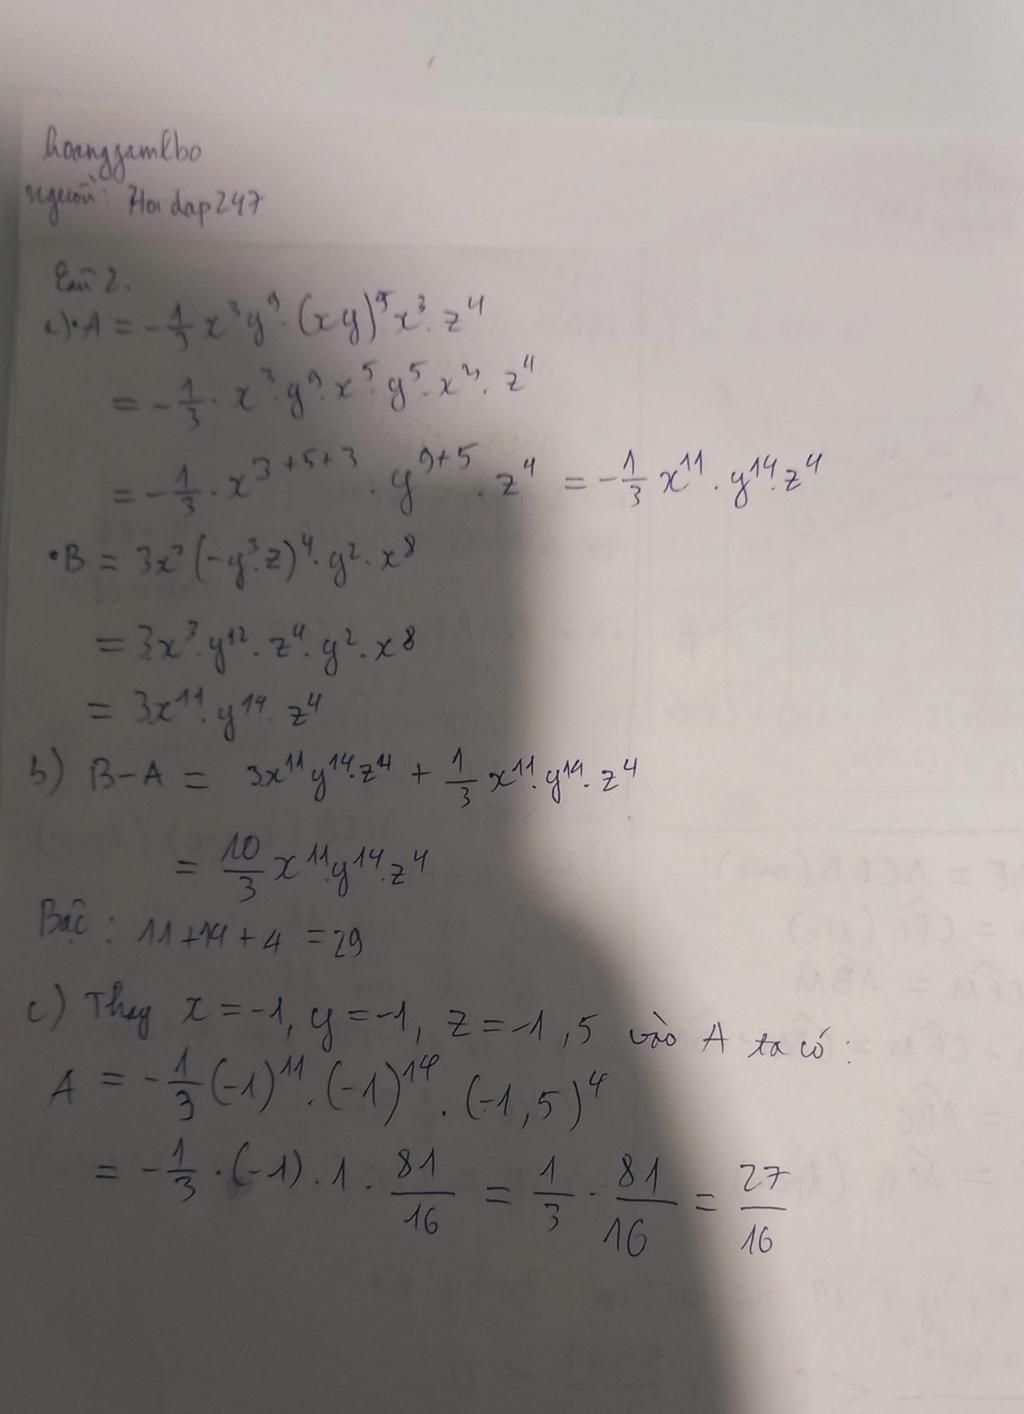 hoanggamlbo
nguồn: Hoidap247
Câu 2.
a)•A = -1/3 x³y⁹·(xy)⁵x³·z⁴
= -1/3 · x³·y⁹·x⁵·y⁵·x³·z⁴
= -1/3 · x^3+5+3 · y^9+5 · z⁴ = -1/3 x¹¹·y¹⁴·z⁴
•B = 3x³(-y³·z)⁴·y²·x⁸
= 3x³·y¹²·z⁴·y²·x⁸
= 3x¹¹·y¹⁴·z⁴
b) B-A = 3x¹¹y¹⁴·z⁴ + 1/3 x¹¹·y¹⁴·z⁴
= 10/3 x¹¹·y¹⁴·z⁴
Bậc: 11+14+4 = 29
c) Thay x=-1, y=-1, z=-1,5 vào A ta có:
A = -1/3 (-1)¹¹·(-1)¹⁴·(-1,5)⁴
= -1/3 ·(-1).1 · 81/16 = 1/3 · 81/16 = 27/16